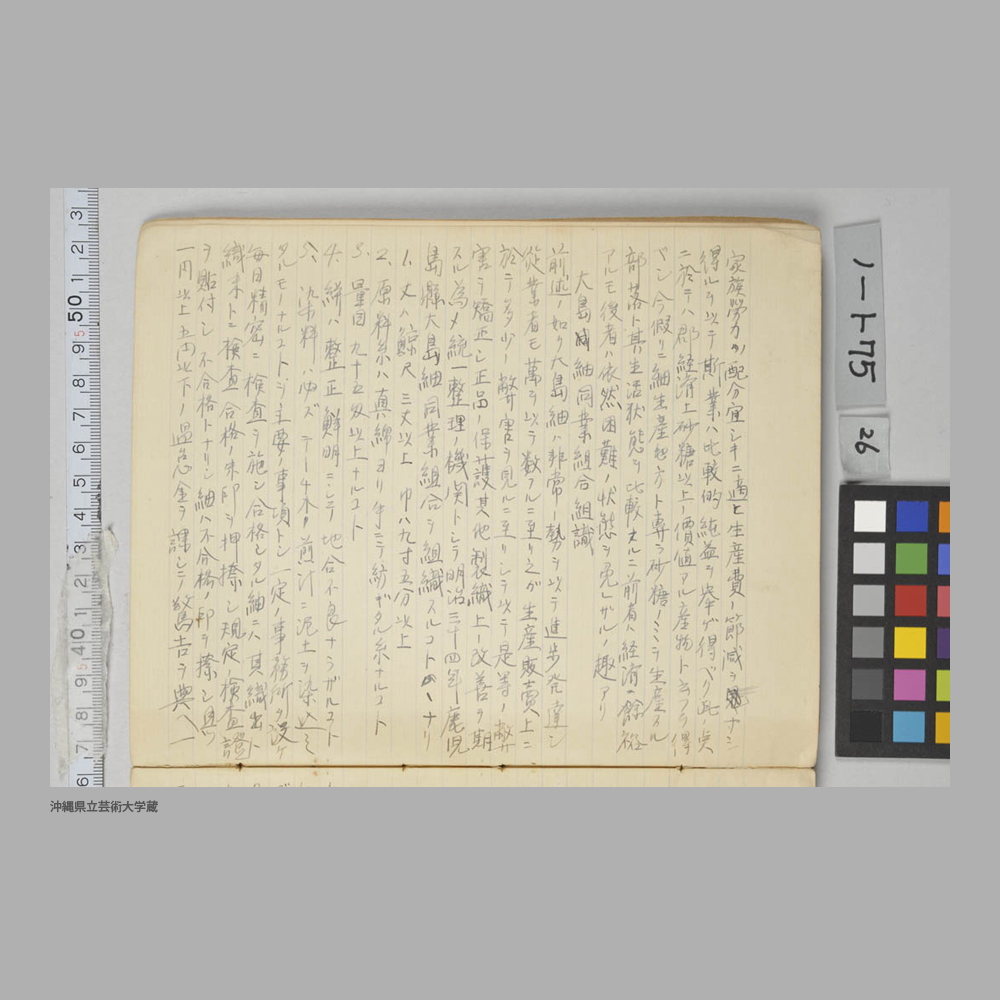 家族労力ノ配分宜シキニ適ヒ生産費ノ節減ヲナシ
得ルヲ以テ斯業ハ比較的純益ヲ挙ゲ得ベク此ノ点
ニ於テハ郡経済上砂糖以上ノ価値アル産物ト云フヲ得
ベシ今假リニ紬生産地方ト専ラ砂糖ノミヲ生産スル
部落ト其生活状態ヲ比較スルニ前者ハ経済ニ餘裕
アルモ後者ハ依然困難ノ状態ヲ免レザルノ趣アリ
大島紬同業組合組識
前述ノ如ク大島紬ハ非常ノ勢ヲ以テ進歩発達シ
従業者モ萬ヲ以テ数フルニ至リシガ生産販賣上ニ
於テ多少ノ弊害ヲ見ルニ至リシヲ以テ是等ノ弊
害ヲ矯正シ正品ノ保護其他製織上ノ改善ヲ期
スル為メ統一整理ノ機関トシテ明治三十四年鹿児
島縣大島紬同業組合ヲ組織スルコトヽナリ
1. 丈ハ鯨尺三丈以上 巾ハ九寸五分以上
2. 原料糸ハ真綿ヨリ手ニテ紡ギタル糸ナルコト
3. 量目 九十五匁以上ナルコト
4. 絣ハ整正鮮明ニシテ地合不良ナラザルコト
5. 染料ハ必ズテーチ木ノ煎汁ニ泥土ヲ染込ミ
タルモノナルコト
毎日精密ニ検査ヲ施シ合格シタル紬ニハ其織出ト
織末トニ検査合格ノ朱印ヲ押捺シ規定ノ検査證
ヲ貼付シ不合格トナリシ紬ハ不合格ノ印ヲ捺シ
一円以上五円以下ノ過怠金ヲ課シテ警告ヲ與ヘ
1-ト-75
26
沖縄県立芸術大学蔵